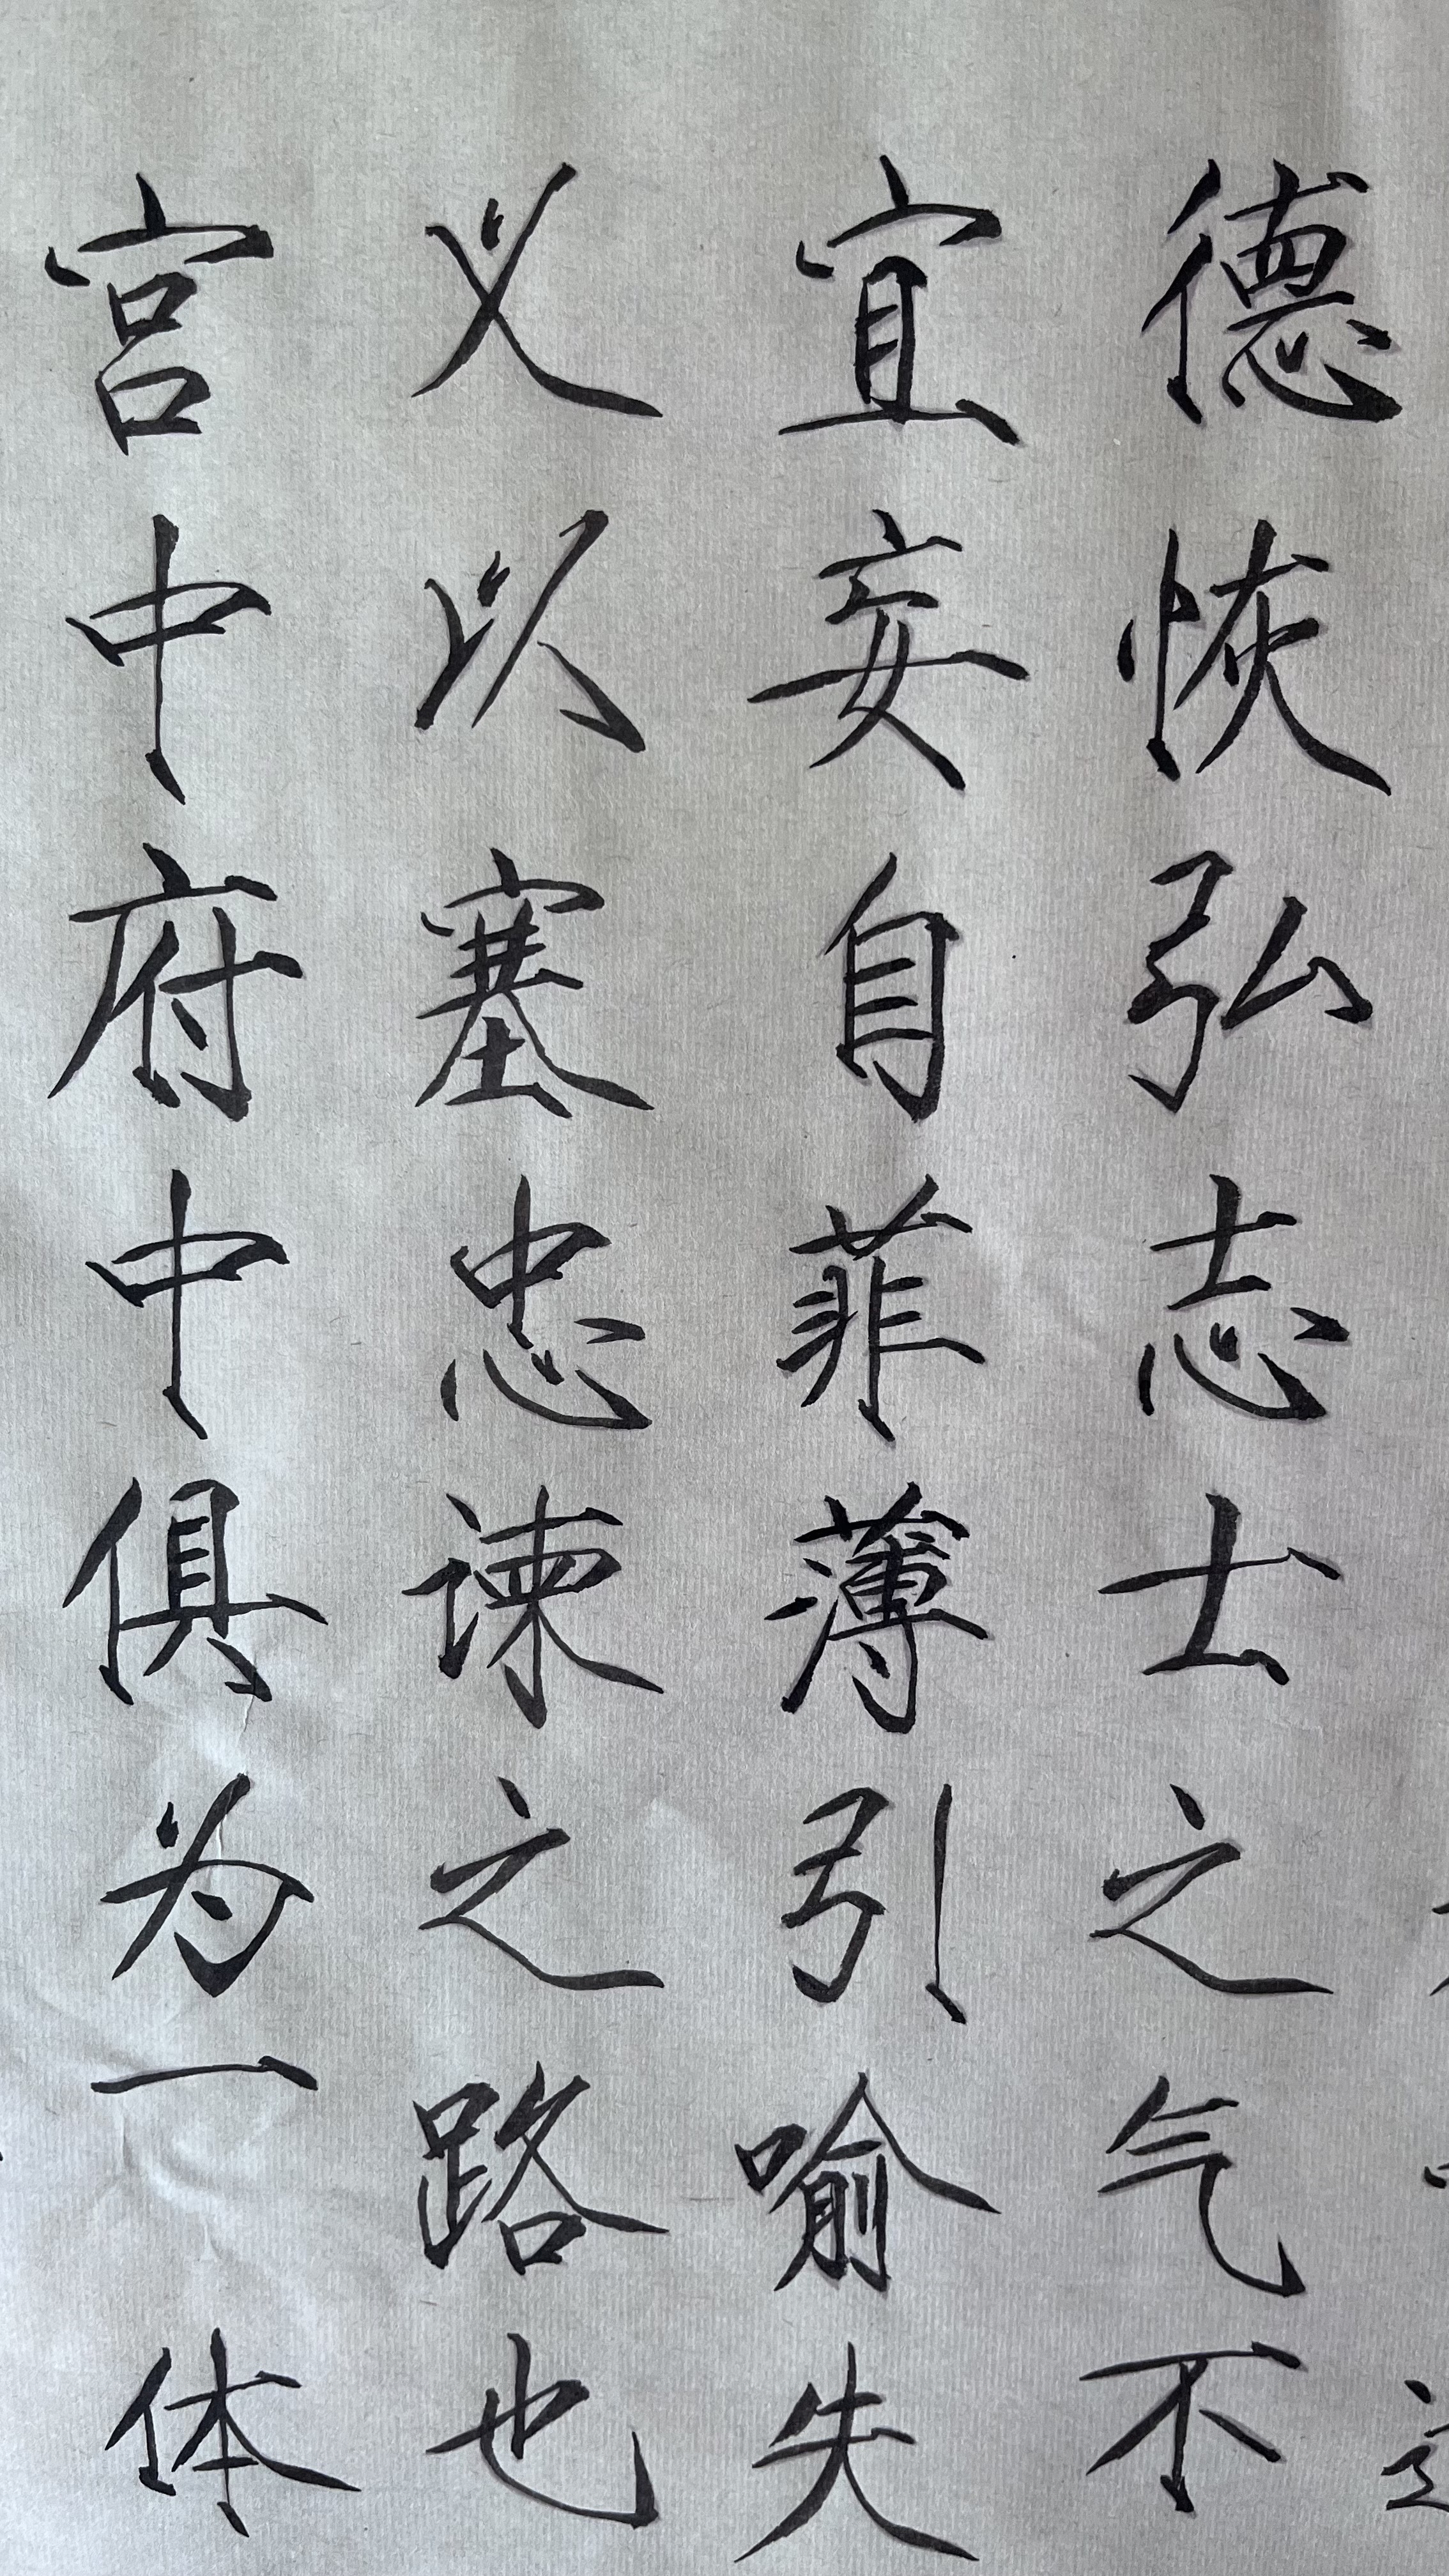 德恢弘志士之气不
宜妄自菲薄引喻失
义以塞忠谏之路也
宫中府中俱为一体